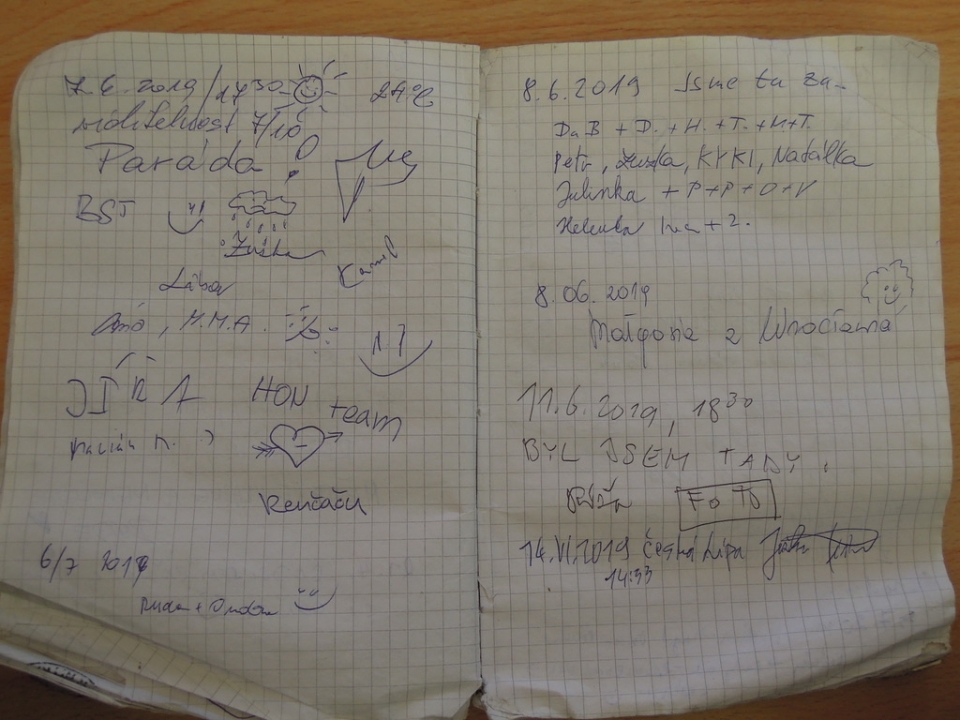 7.6.2019/17³⁰ 24°C
viditelnost 7/10
Paráda!
BST
Zuzka
Kamil
Libor
M.M.A.
JÍŘA HON team
Renčáču
6/7 2019
8.6.2019 Jsme tu za-
DaB + D. + H. + T. + K+T.
Petr, Zuzka, KYKI, Natálka
Julinka + P+P+O+V
Helenka + 2.
8.06.2019
Małgosia z Wrocławia
11.6.2019, 18³⁰
BYL JSEM TADY.
FoTo
14.VI.2019 Česká Lípa
14:53